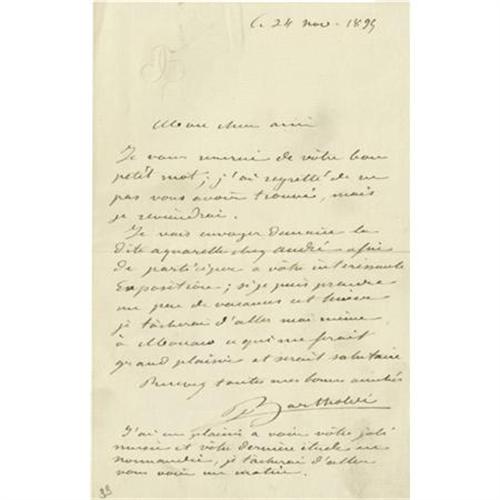 24 nov. 1895
Mon cher ami
Je vous remercie de vôtre bon
petit mot; j'ai regretté de ne
pas vous avoir trouvé, mais
je reviendrai.
Je vais envoyer demain la
dite aquarelle chez André afin
de participer a vôtre intéressante
Exposition; si je puis prendre
un peu de vacances cet hiver
je tâcherai d'aller moi même
à Monaco ce qui me ferait
grand plaisir et serait salutaire
Recevez toutes mes bonnes amitiés
Bartholdi
J'ai eu plaisir a voir vôtre joli
et vôtre dernière étude en
normandie, je tâcherai d'aller
vous voir un matin.